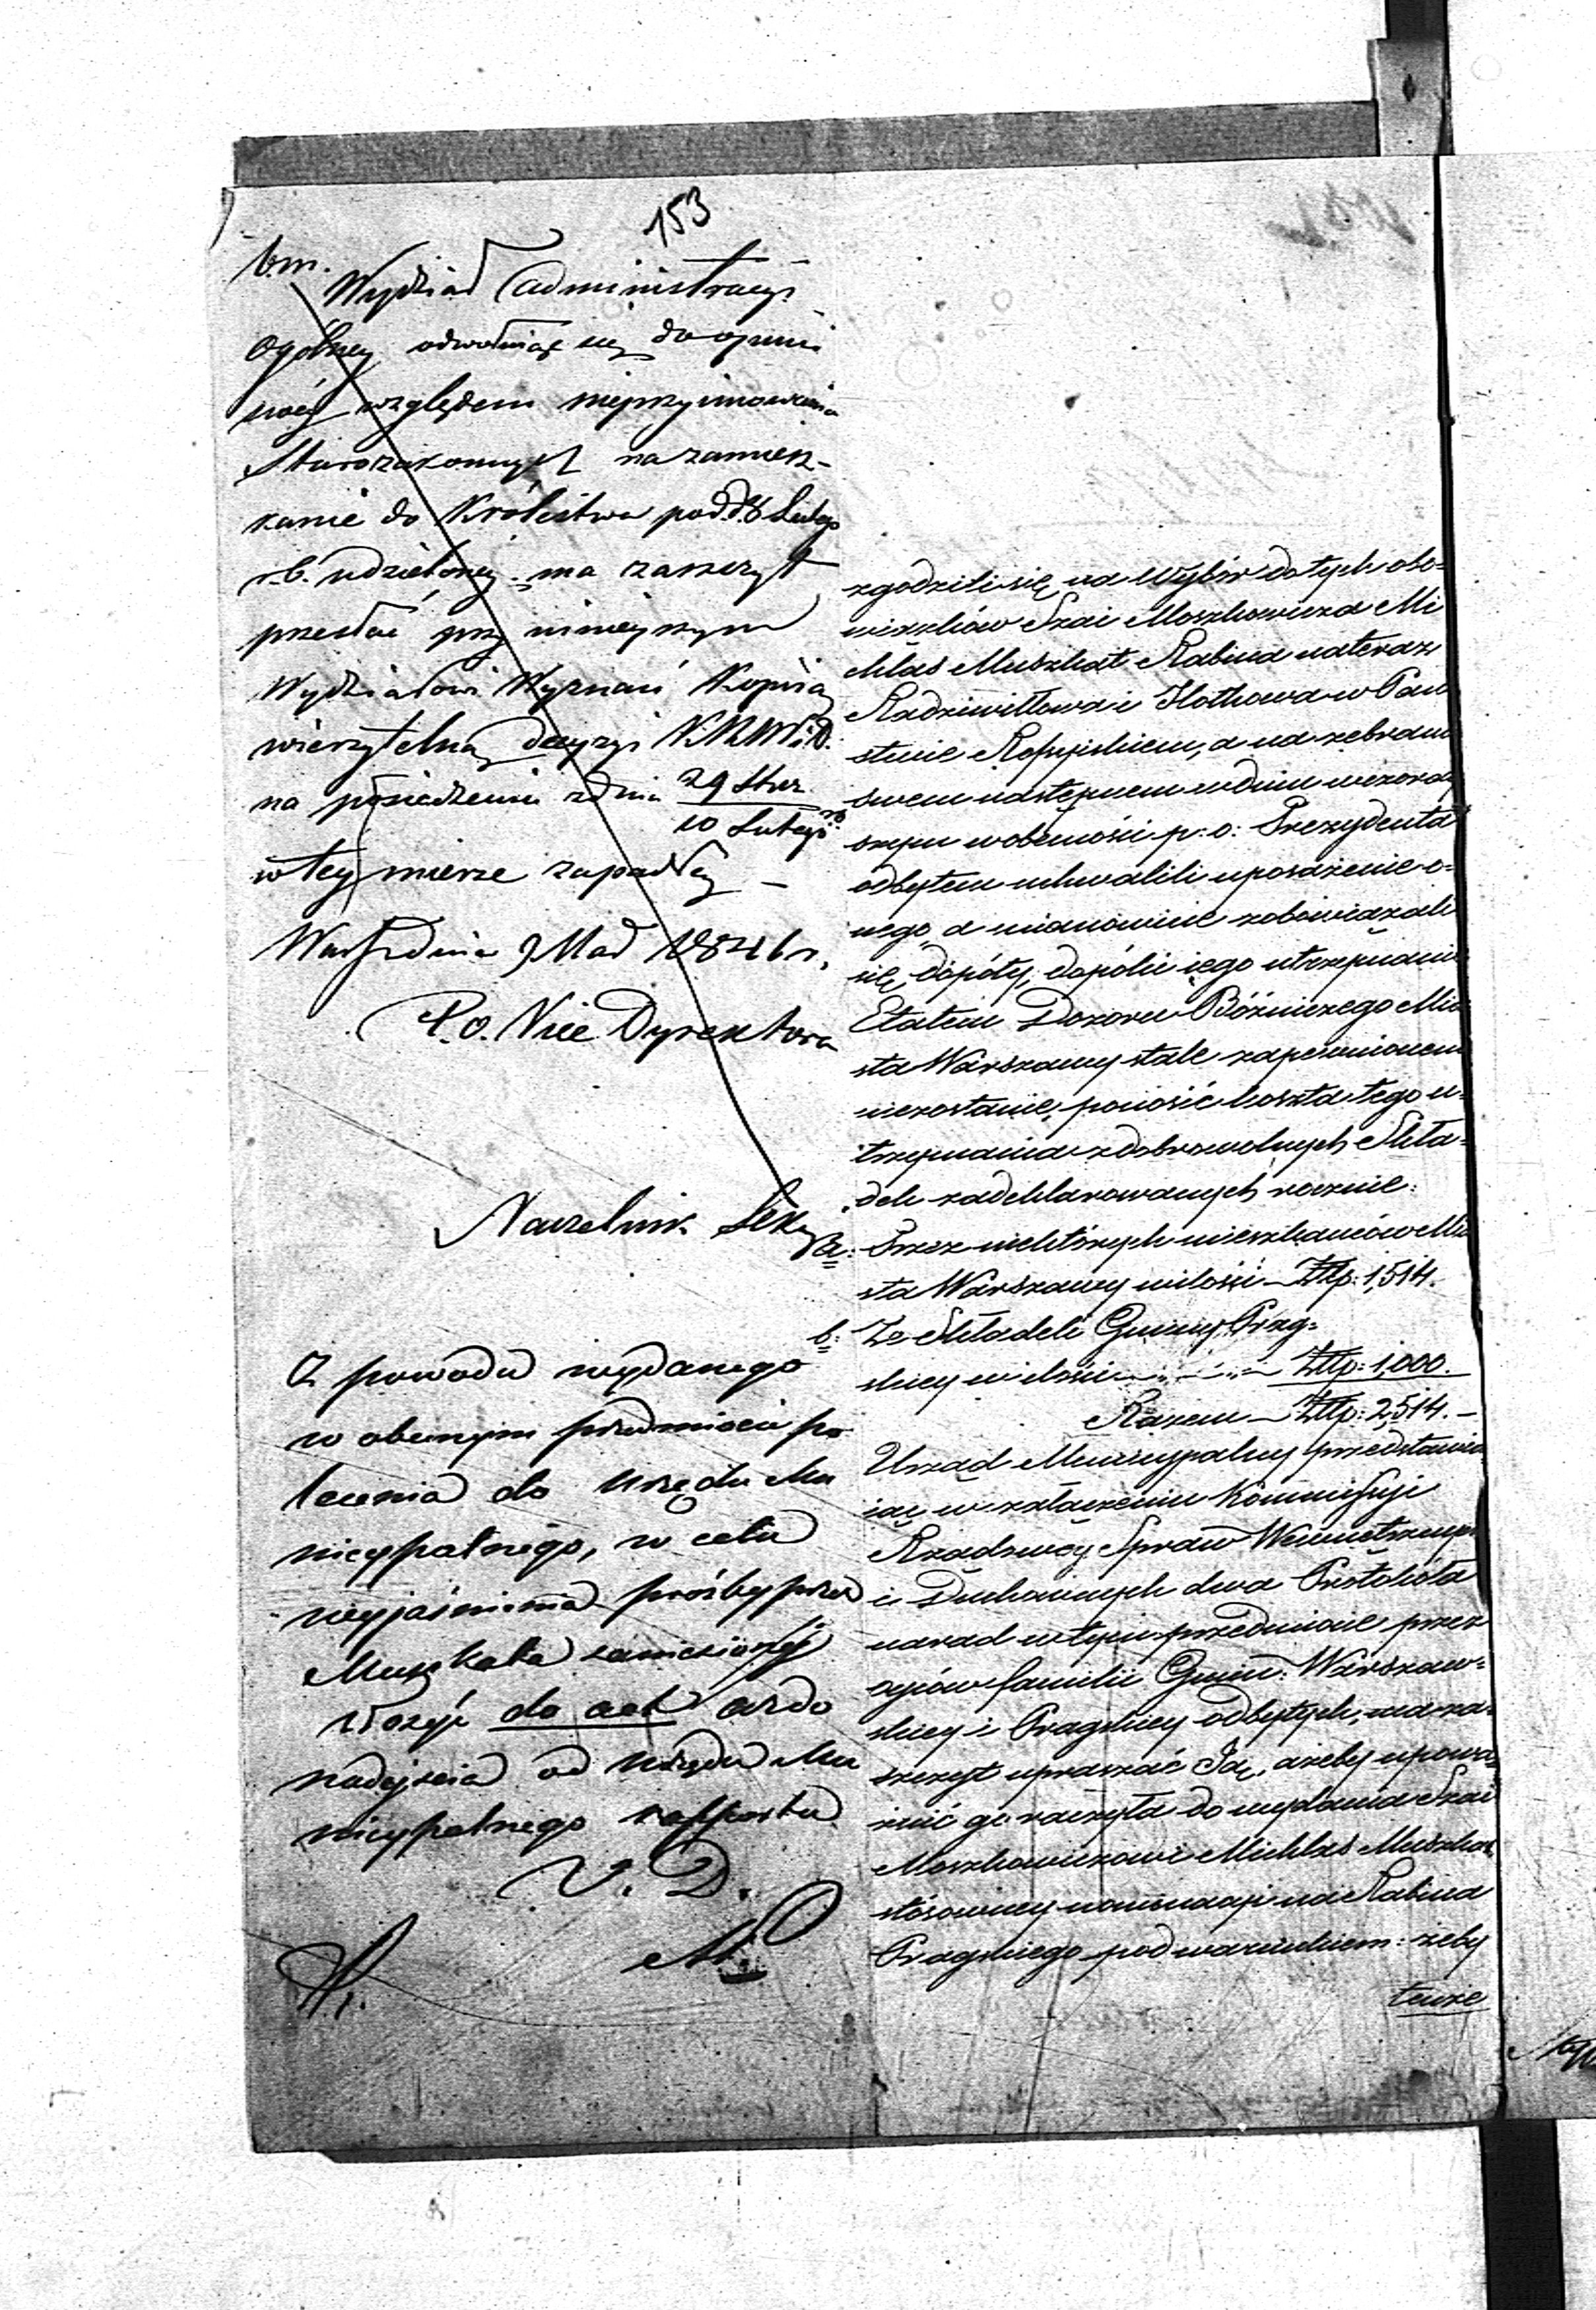 153
b.m.
Wydział Administracyi
Ogólney odwołuiąc się do opinii
swéj względem nieprzyimowania
Starozakonnych na zamiesz-
kanie do Królestwa pod d. 8 Lutego
r.b. udzieloney ma zaszczyt
przesłać przy ninieyszym
Wydziałowi Wyznań Kopią
wierzytelną decyzyi
na posiedzeniu z dnia 29 Stycz.
10 Lutego rb
w tey mierze zapadłey –
Warsz. dnia 9 Mar
P.o. Vice Dyrektora
Naczelnik Sekcyi
Z powodu wydanego
w obecnym przedmiocie po
lecenia do Urzędu Mu
nicypalnego, w celu
wyjaśnienia prośby przez
Muszkata zaniesionéj
złożyć do akt aż do
nadejścia od Urzędu Mu
nicypalnego rapportu
V. D.
zgodzili się na wybór do tych obo-
wiązków Szai Moszkowicza Mi
chlas Muszkat Rabina na teraz
Radziwiłłowa i w Pań
stwie Rossyjskiem, a na zebraniu
swem następnem w dniu wczoray
szym w obecności p: o: Prezydenta
odbytem uchwalili uposażenie o-
nego a mianowicie zobowiązali
się, dopóty, dopóki iego utrzymanie
Etatem Dozoru Bóżniczego Mia
sta Warszawy stale zapewnionem
niezostanie, ponosić koszta tego u-
trzymania z dobrowolnych Skła-
dek zadeklarowanych rocznie:
a: Przez niektórych mieszkańców Mia
sta Warszawy w ilości – Złtp: 1,514.
b: Ze Składek Gminy Prag-
skiey w ilości – Złtp: 1,000.
Razem – Złtp: 2,514. –
Urząd Municypalny przedstawia
iąc w załączeniu Kommissyi
Rządowéy Spraw Wewnętrznych
i Duchownych dwa Protokóła
narad w tym przedmiocie przez
oyców familii Gmin: Warszaw-
skiey i Pragskiey odbytych, ma za-
szczyt upraszać Ją, ażeby upowa-
żnić go raczyła do wydania Szai
Moszkowiczowi Michlas Muszkat
stósowney nominacyi na Rabina
Pragskiego pod warunkiem: żeby
tenże